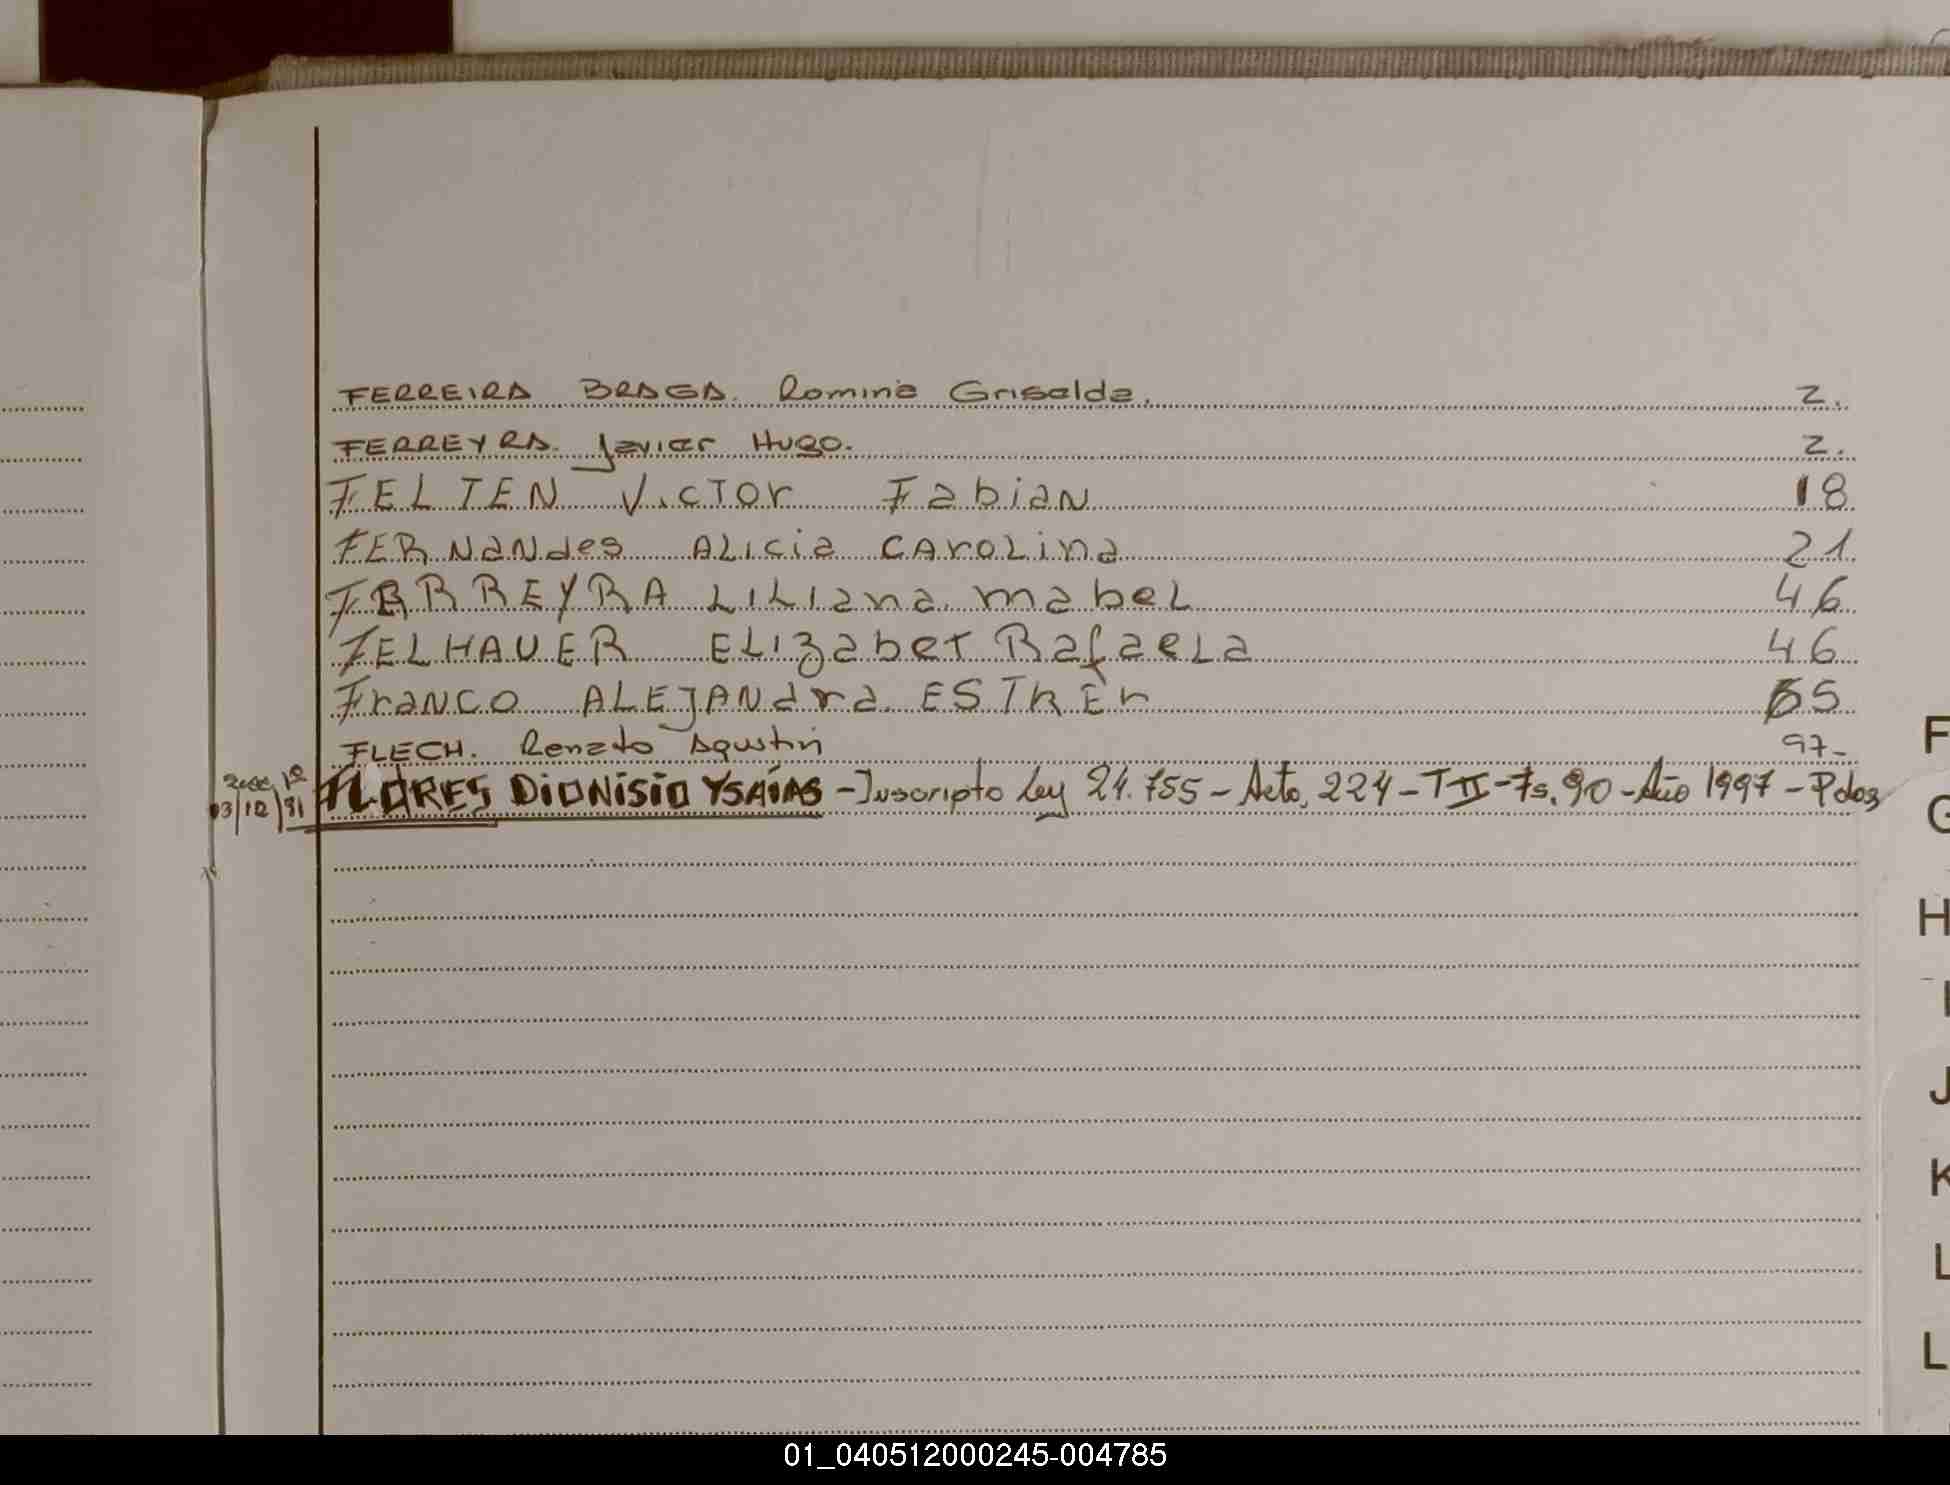 FERREIRA BRAGA. Romina Griselda. 2.
FERREYRA. Javier Hugo. 2.
FELTEN Victor Fabian 18
FERNANdes ALicia CAROLina 21
FERREYRA LILiana mabel 46
FELHAUER ELIZabet RafaeLa 46
FraNCO ALEJANdra ESTHEr 55
FLECH. Renato Agustin 97-
03/12/81 FLORES DiONisio YSAÍAS - Inscripto Ley 24.755 - Acto. 224 - T II - Fs. 90 - Año 1997 - Pdas
F
G
H
I
J
K
L
L
01_040512000245-004785